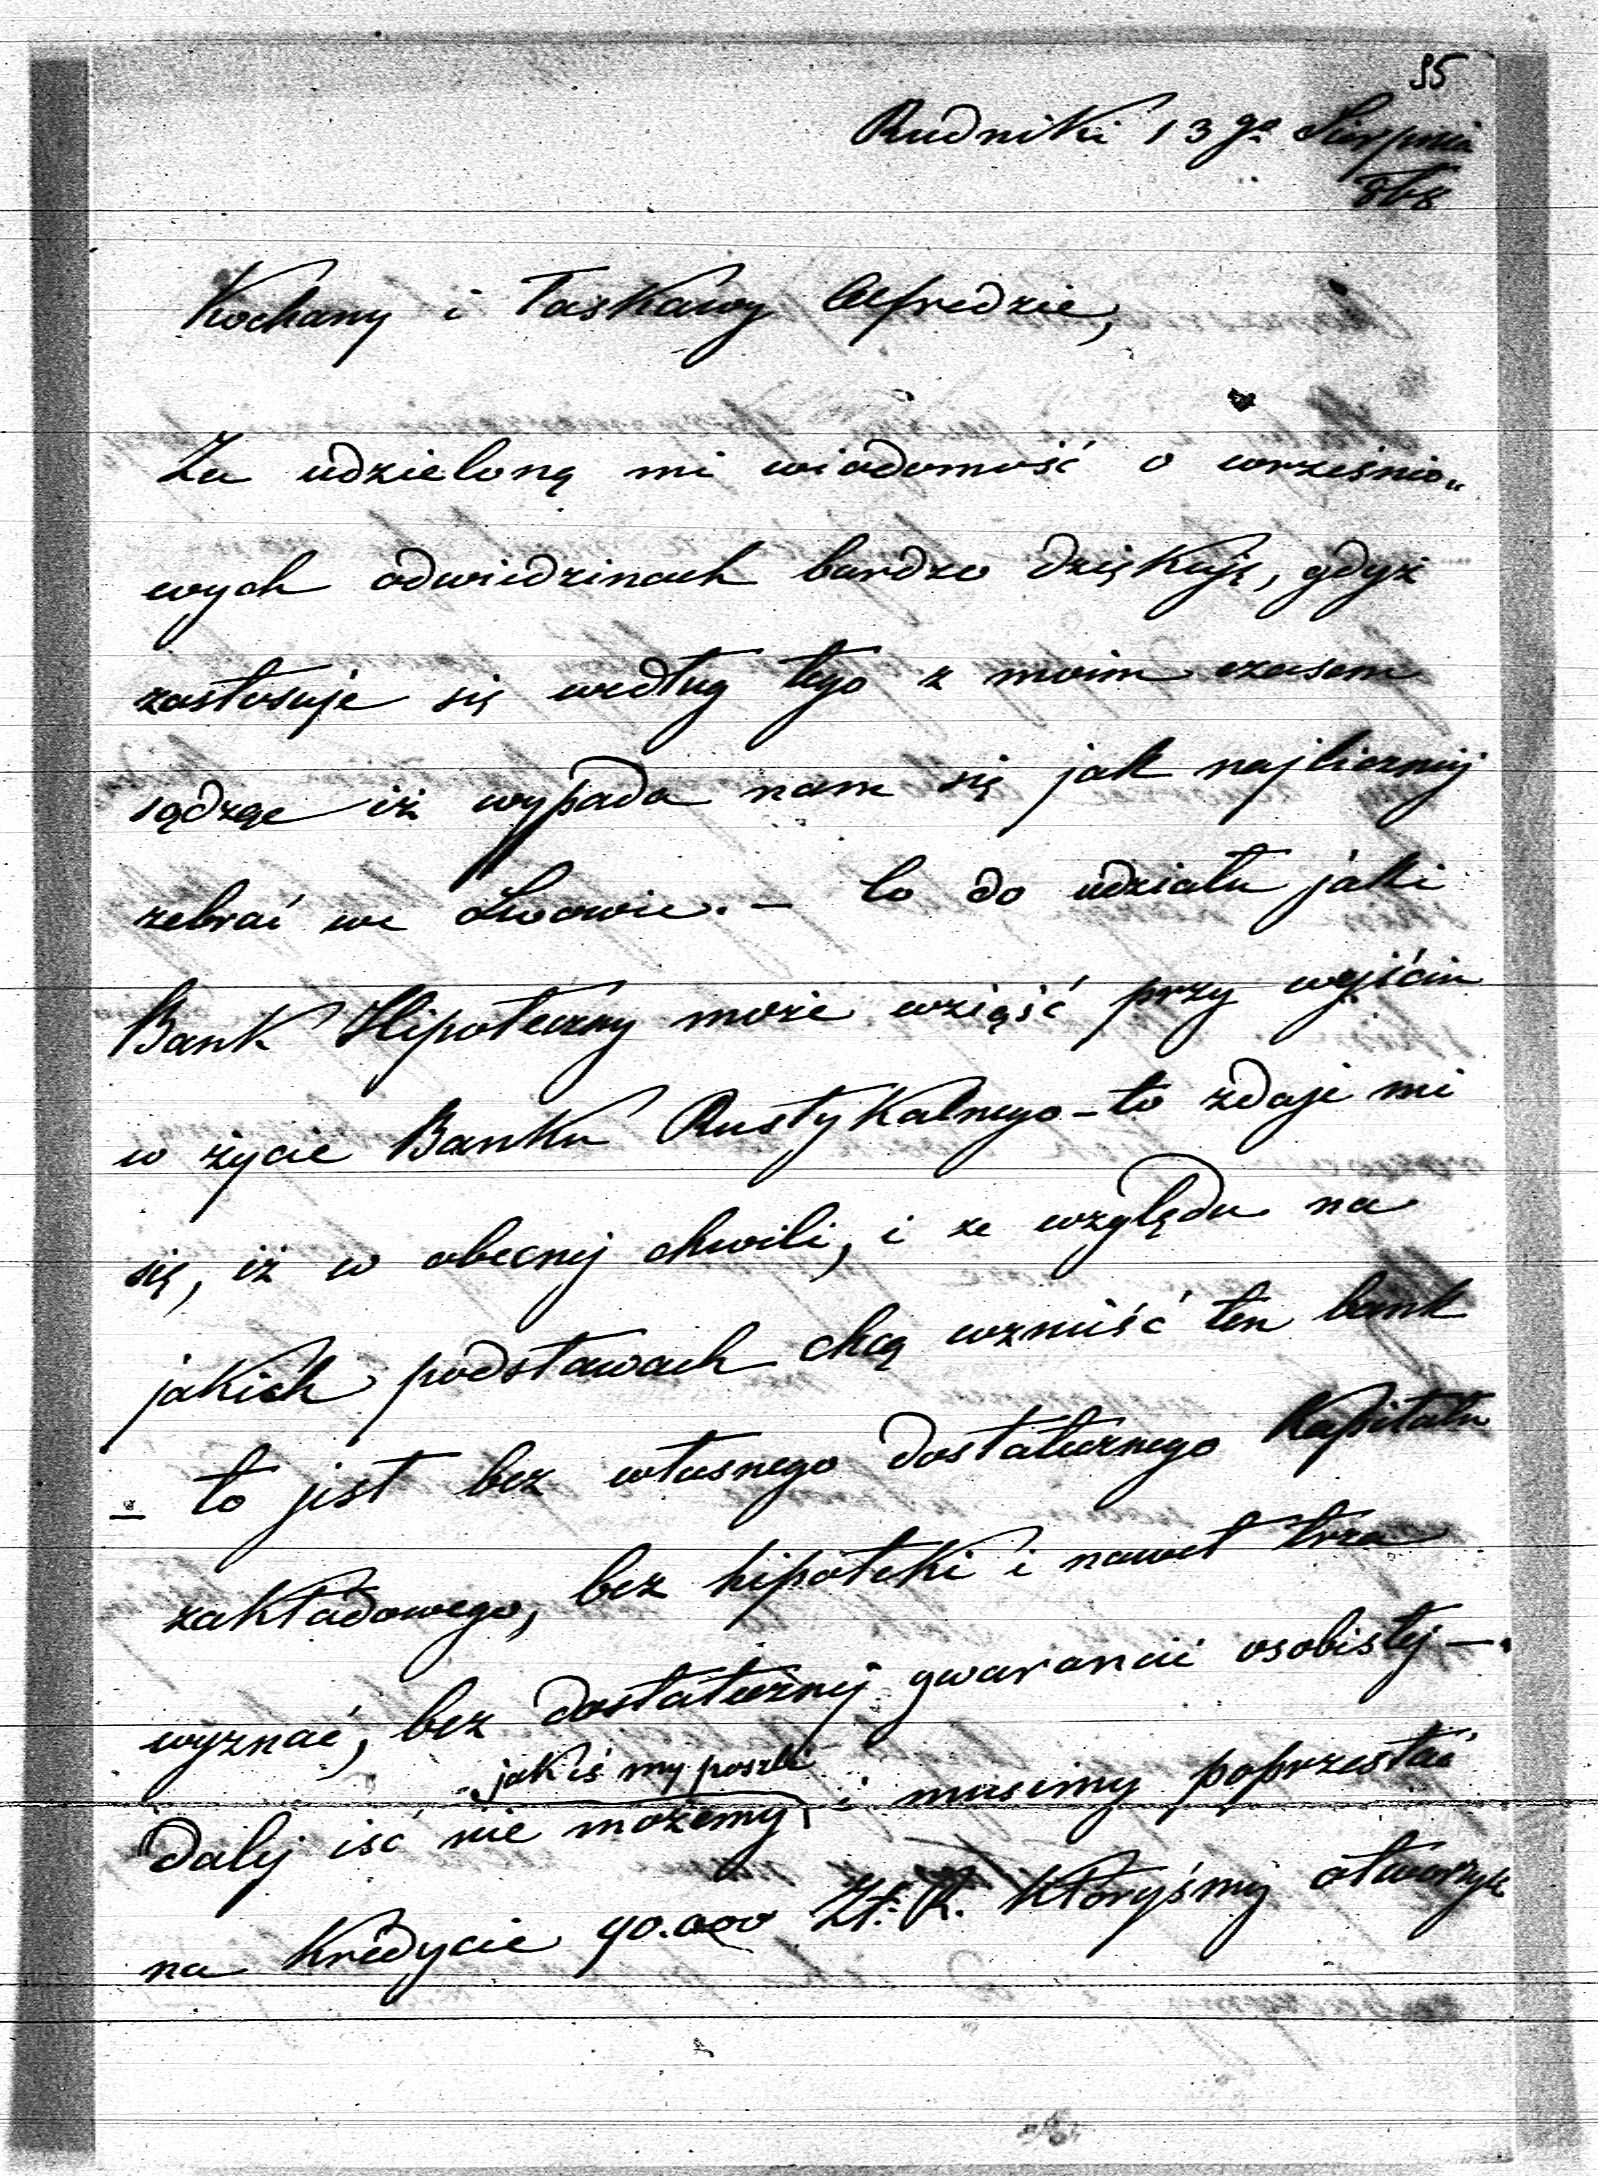 35
Rudniki 13go Sierpnia
868
Kochany i Łaskawy Alfredzie,
Za udzieloną mi wiadomość o wrześnio„
wych odwiedzinach bardzo dziękuję, gdyż
zastosuje się według tego z moim czasem
sądząc iż wypada nam się jak najliczniej
zebrać we Lwowie. – Co do udziału jaki
Bank Hipoteczny może wziąść przy wejściu
w życie Banku Rustykalnego – to zdaje mi
się, iż w obecnej chwili, i ze względu na
jakich podstawach chcą wznieść ten bank
– to jest bez własnego dostatecznego Kapitału
zakładowego, bez hipoteki i nawet trza
wyznać, bez dostatecznej gwarancii osobistej –
jakiś my poszli
dalej iść nie możemy i musimy poprzestać
na Kredycie 90.000 Zł. R. któryśmy otworzyli